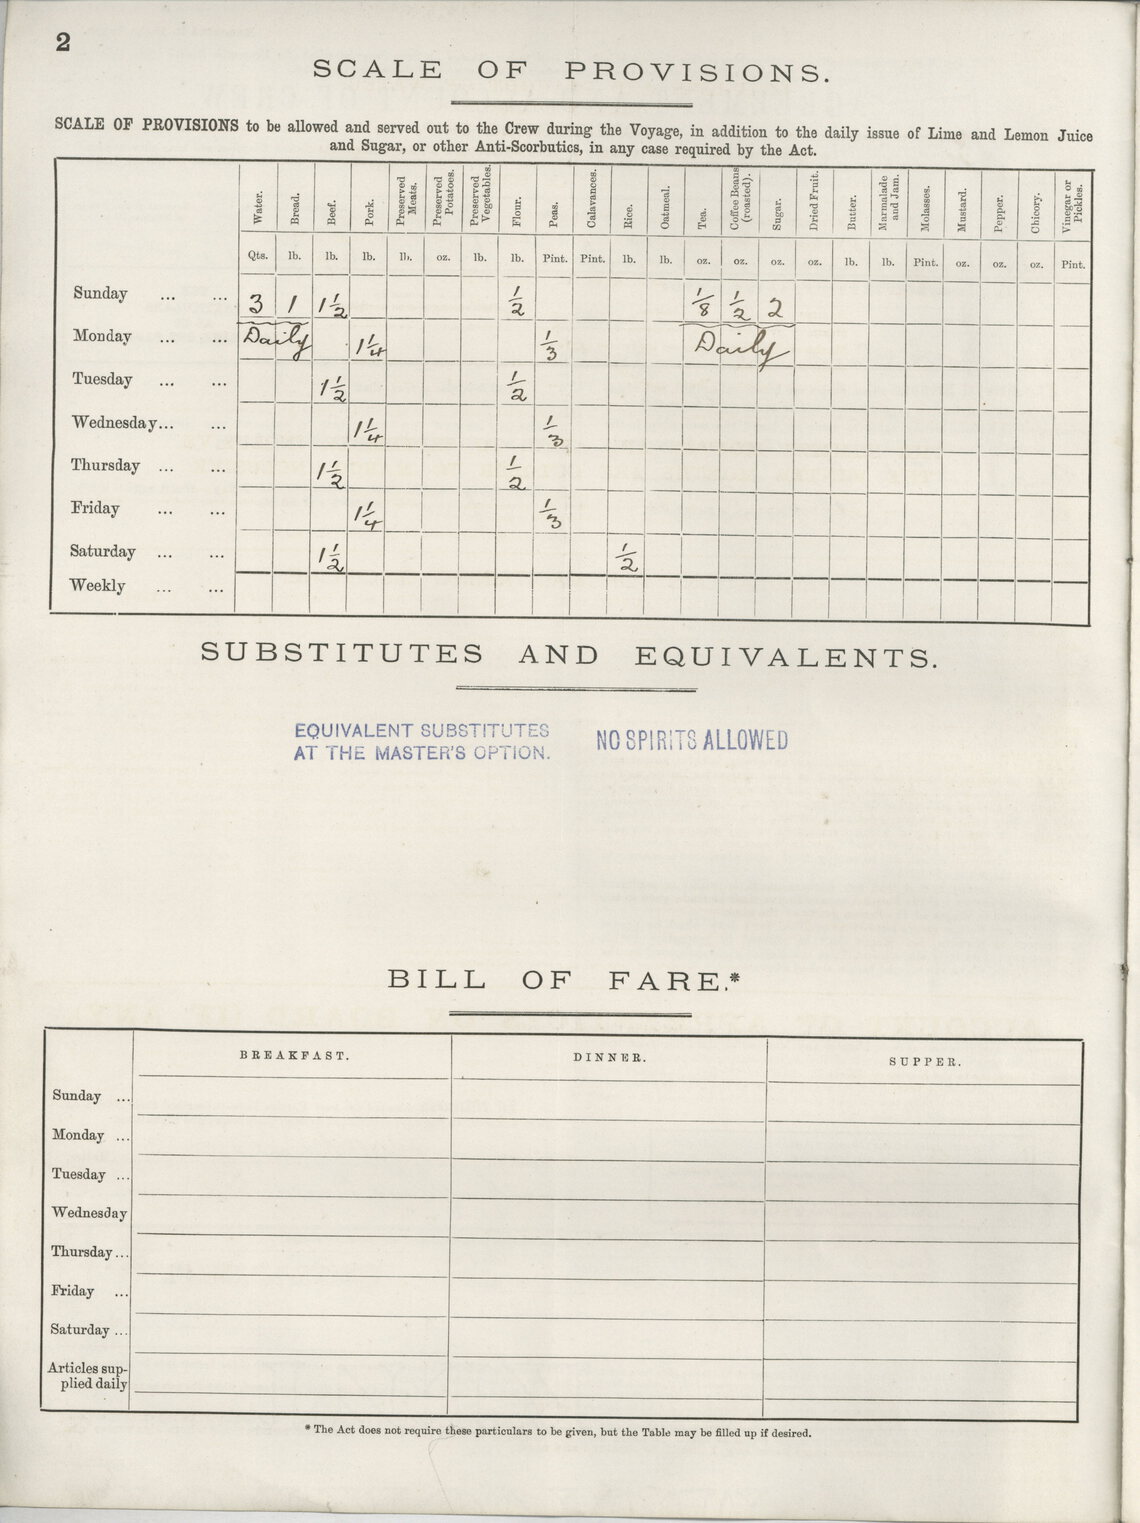 2
SCALE OF PROVISIONS.
SCALE OF PROVISIONS to be allowed and served out to the Crew during the Voyage, in addition to the daily issue of Lime and Lemon Juice
and Sugar, or other Anti-Scorbutics, in any case required by the Act.
Water. Bread. Beef. Pork. Preserved Meats. Preserved Potatoes. Preserved Vegetables. Flour. Peas. Calavances. Rice. Oatmeal. Tea. Coffee Beans (roasted). Sugar. Dried Fruit. Butter. Marmalade and Jam. Molasses. Mustard. Pepper. Chicory. Vinegar or Pickles.
Qts. lb. lb. lb. lb. oz. lb. lb. Pint. Pint. lb. lb. oz. oz. oz. oz. lb. lb. Pint. oz. oz. oz. Pint.
Sunday ... ... 3 1 1½ ½ ⅛ ½ 2
Monday ... ... Daily 1¼ ⅓ Daily
Tuesday ... ... 1½ ½
Wednesday... ... 1¼ ⅓
Thursday ... ... 1½ ½
Friday ... ... 1¼ ⅓
Saturday ... ... 1½ ½
Weekly ... ...
SUBSTITUTES AND EQUIVALENTS.
EQUIVALENT SUBSTITUTES
AT THE MASTER'S OPTION.
NO SPIRITS ALLOWED
BILL OF FARE.*
BREAKFAST. DINNER. SUPPER.
Sunday ...
Monday ...
Tuesday ...
Wednesday
Thursday...
Friday ...
Saturday ...
Articles sup-
plied daily
* The Act does not require these particulars to be given, but the Table may be filled up if desired.